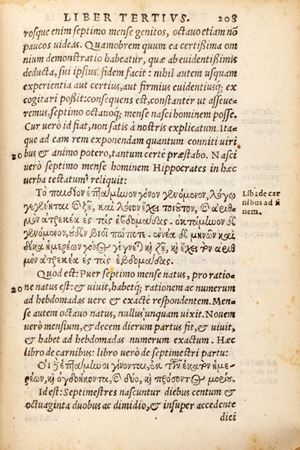 LIBER TERTIVS. 208
rosque enim septimo mense genitos, octauo etiam nõ
paucos uideas. Quamobrem quum ea certißima om
nium demonstratio habeatur, quæ ab euidentißimis
deducta, sui ipsius fidem facit: nihil autem usquam
experientia aut certius, aut firmius euidentiusq; ex
cogitari poßit: consequens est, constanter ut asseue-
remus, septimo octauoq; mense nasci hominem posse.
Cur uerò id fiat, non satis à nostris explicatum. Ita-
que ad eam rem exponendam quantum conniti uiri
20 bus & animo potero, tantum certè præstabo. Nasci
uerò septimo mense hominem Hippocrates in hæc
uerba testatum reliquit:
Τὸ παιδίον ἑπτάμηνον γόνον γενόμενον, λόγῳ
γεγένηται
Lib. de car
nibus ad fi
nem.
Quod est: Puer septimo mense natus, pro ratio-
ne natus est: & uiuit, habetq; rationem ac numerum
ad hebdomadas uere & exactè respondentem. Men-
se autem octauo natus, nullus unquam uixit. Nouem
uerò mensium, & decem dierum partus fit, & uiuit,
& habet ad hebdomadas numerum exactum. Hæc
libro de carnibus: libro uerò de septimestri partu:
Οἱ ἑπτάμηνοι γίνονται, ἐκ τῶν ἑκατὸν ἡμε-
ρέων, κὶ ὀγδοήκοντα, & δύο, κὶ
Id est: Septimestres nascuntur diebus centum &
octuaginta duobus ac dimidio, & insuper accedente
dici